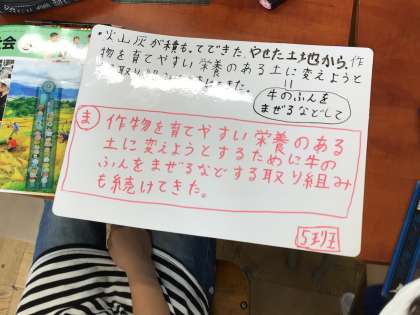 ・火山灰が積もってできた、やせた土地から、作
物を育てやすい栄養のある土に変えようと
取り組
きた。
牛のふんを
まぜるなどして
ま 作物を育てやすい栄養のある
土に変えようとするために牛の
ふんをまぜるなどする取り組み
も続けてきた。
5班
会